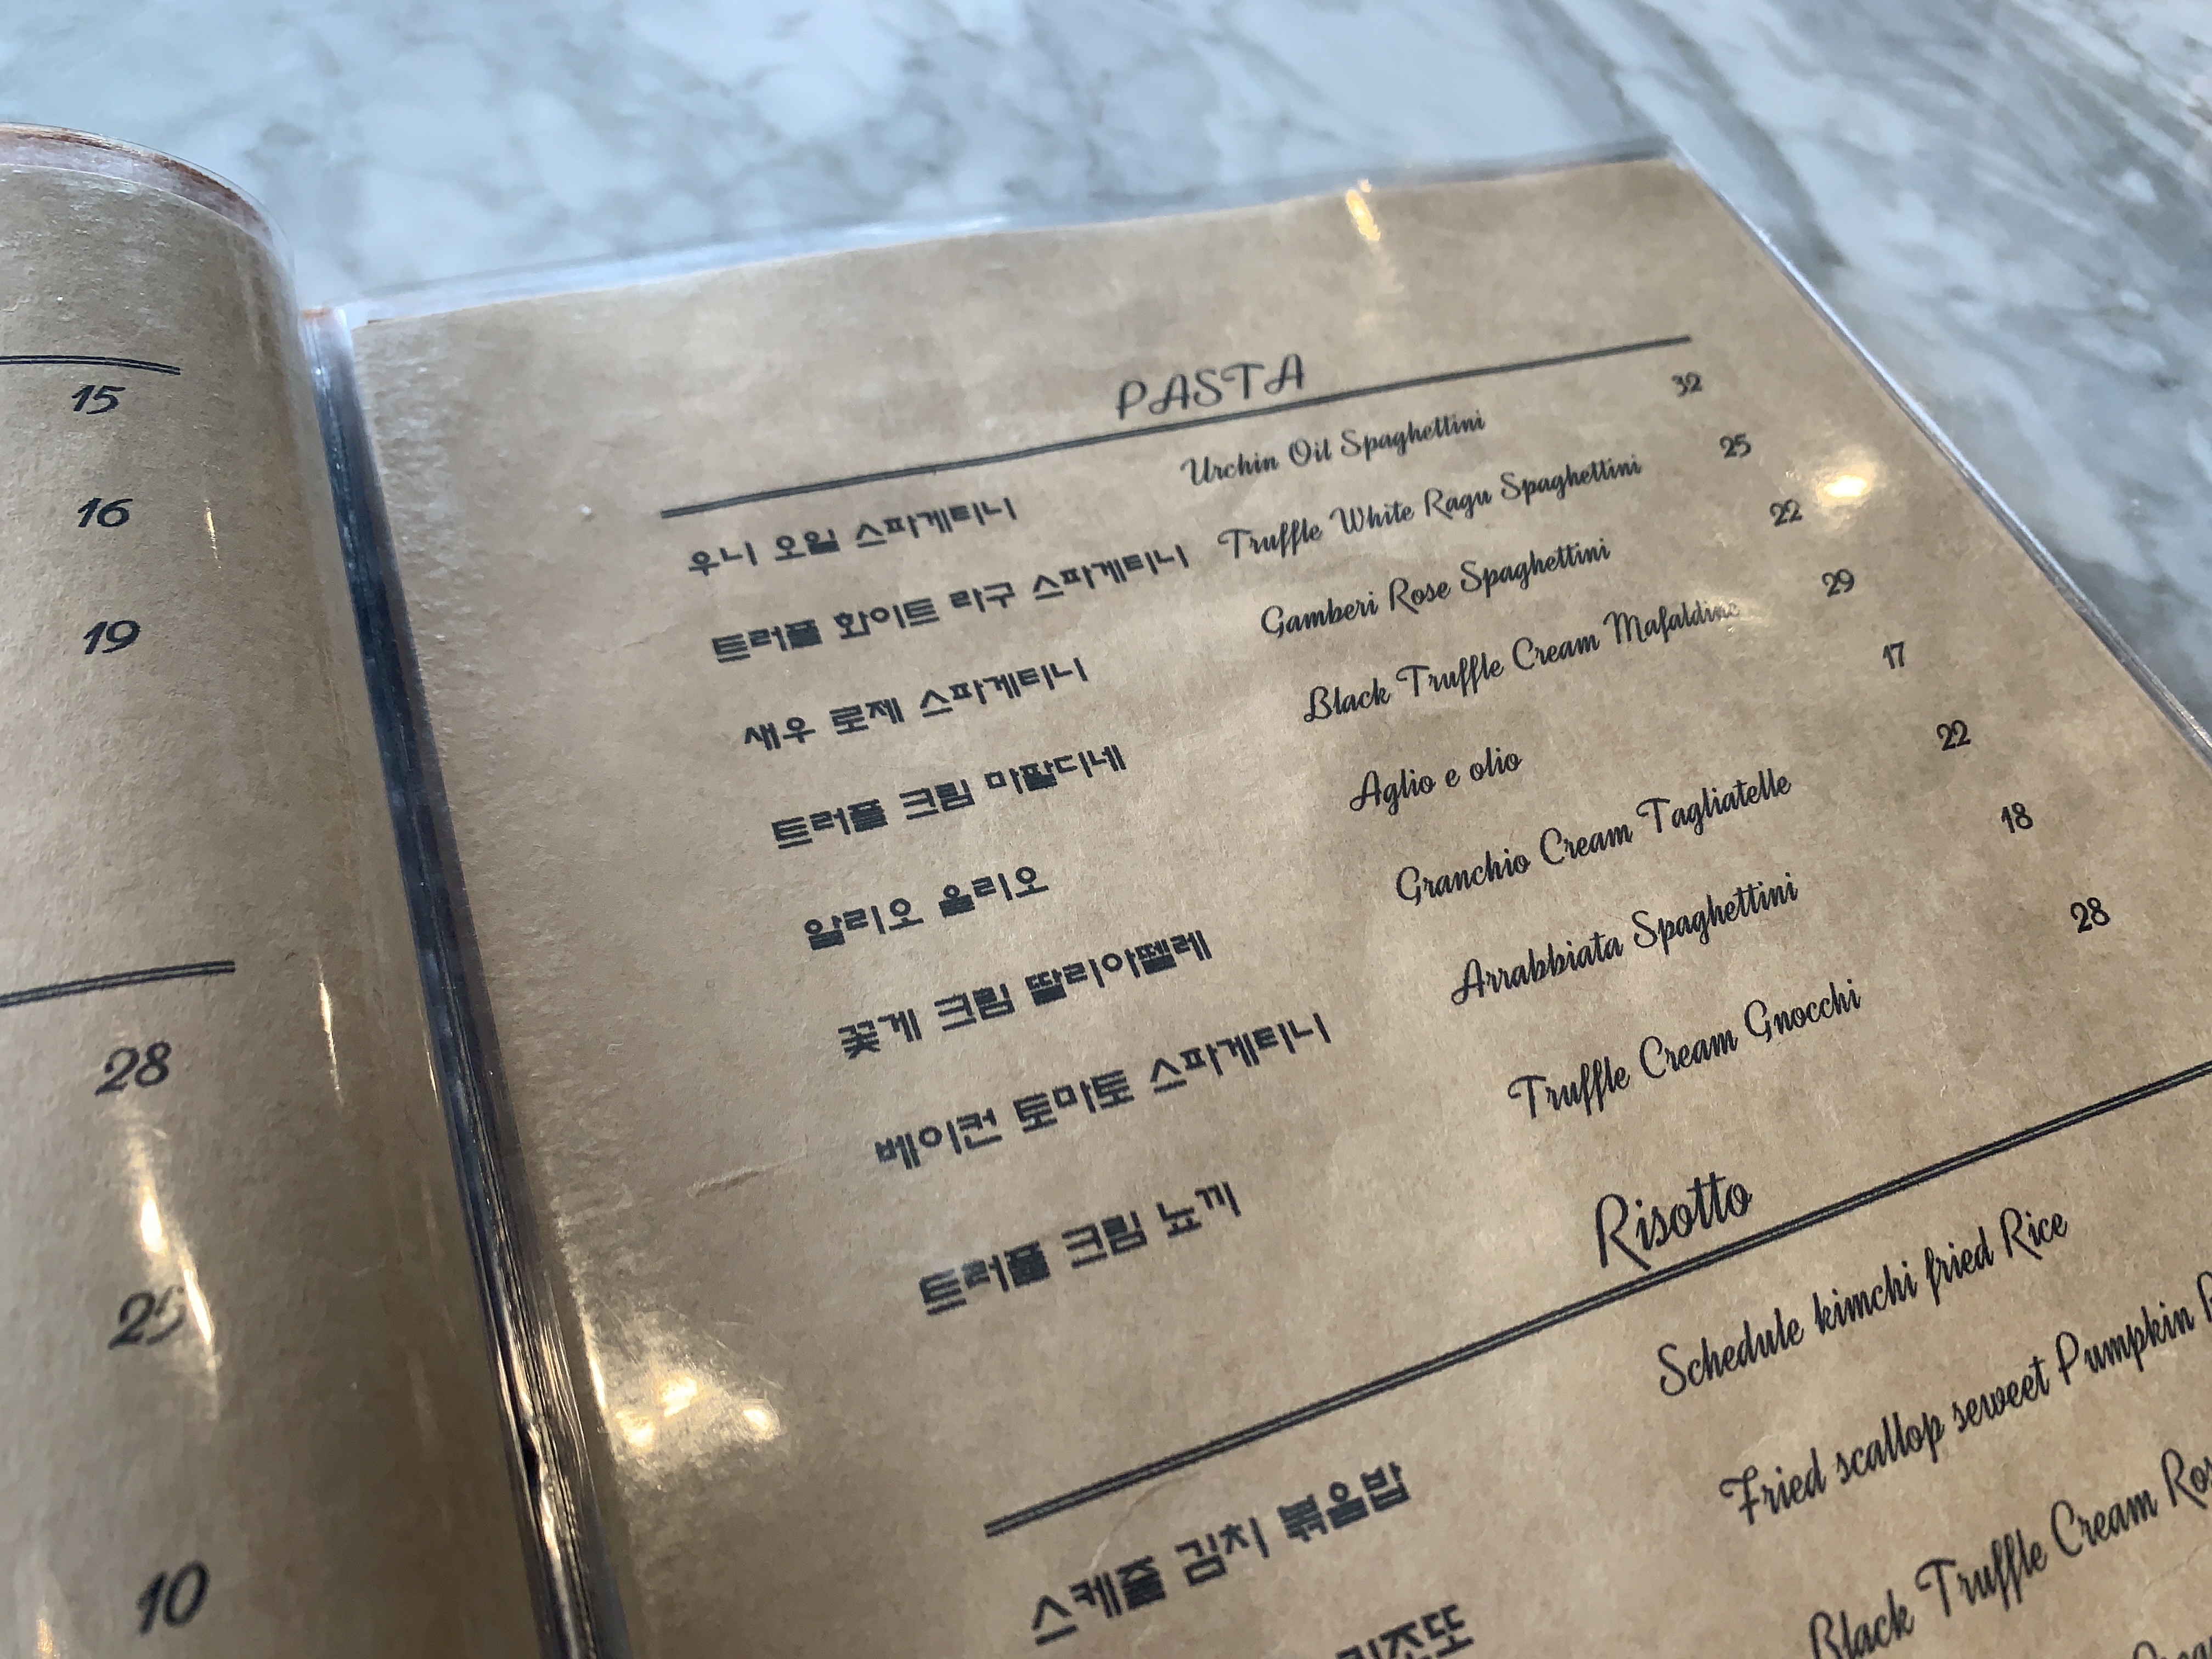 15
16
19
28
25
10
PASTA
우니 오일 스파게티니 Urchin Oil Spaghettini 32
트러플 화이트 라구 스파게티니 Truffle White Ragu Spaghettini 25
새우 로제 스파게티니 Gamberi Rose Spaghettini 22
트러플 크림 마팔디네 Black Truffle Cream Mafaldine 29
알리오 올리오 Aglio e olio 17
꽃게 크림 딸리아뗄레 Granchio Cream Tagliatelle 22
베이컨 토마토 스파게티니 Arrabbiata Spaghettini 18
트러플 크림 뇨끼 Truffle Cream Gnocchi 28
Risotto
스케줄 김치 볶음밥 Schedule kimchi fried Rice
리조또 Fried scallop seweet Pumpkin
Black Truffle Cream